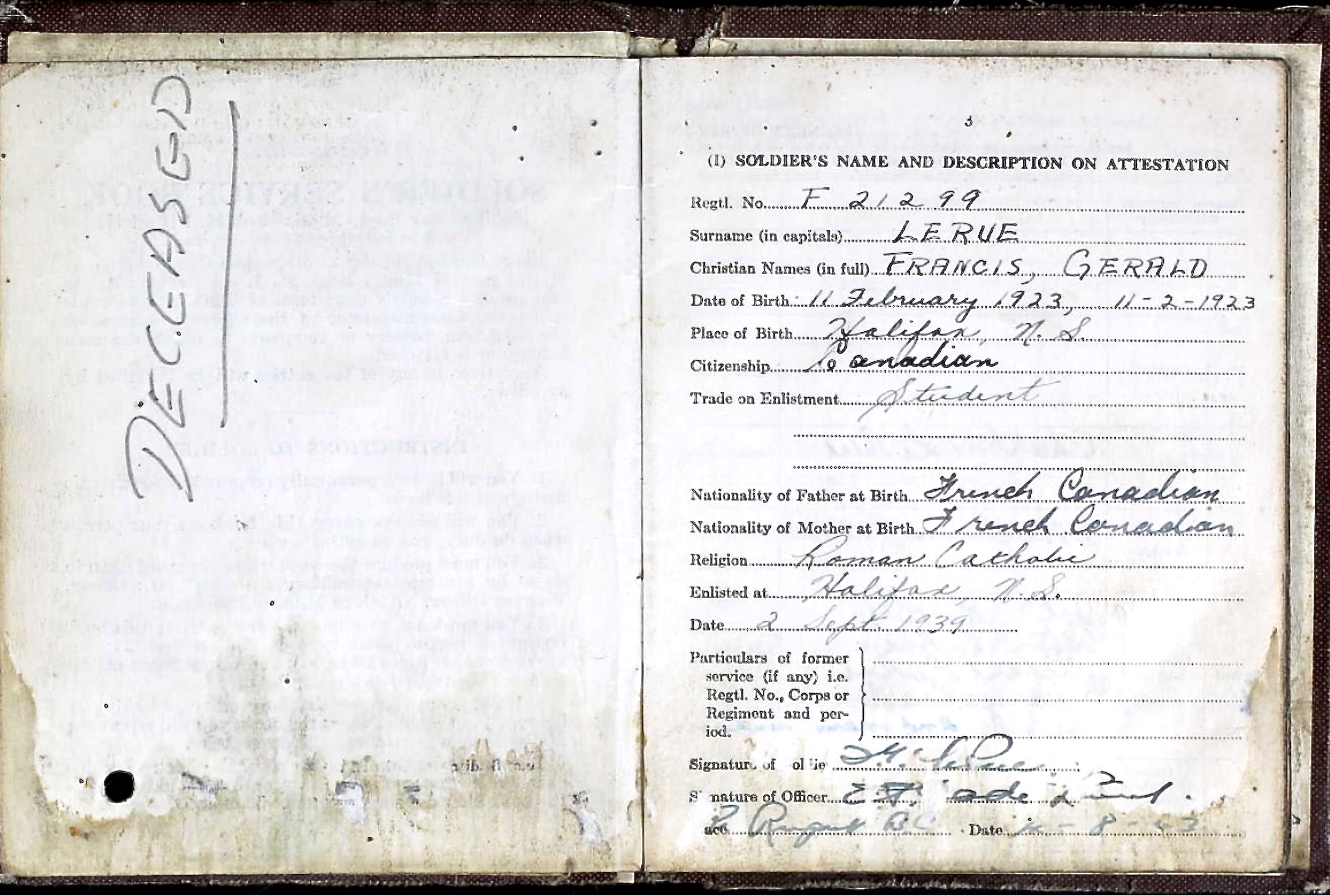 DECEASED
3
(1) SOLDIER'S NAME AND DESCRIPTION ON ATTESTATION
Regtl. No. F 21299
Surname (in capitals) LERUE
Christian Names (in full) FRANCIS, GERALD
Date of Birth 11 February 1923, 11-2-1923
Place of Birth Halifax, N.S.
Citizenship Canadian
Trade on Enlistment Student
Nationality of Father at Birth French Canadian
Nationality of Mother at Birth French Canadian
Religion Roman Catholic
Enlisted at Halifax, N.S.
Date 2 Sept. 1939
Particulars of former
service (if any) i.e.
Regtl. No., Corps or
Regiment and per-
iod.
Signature of
nature of Officer
Date